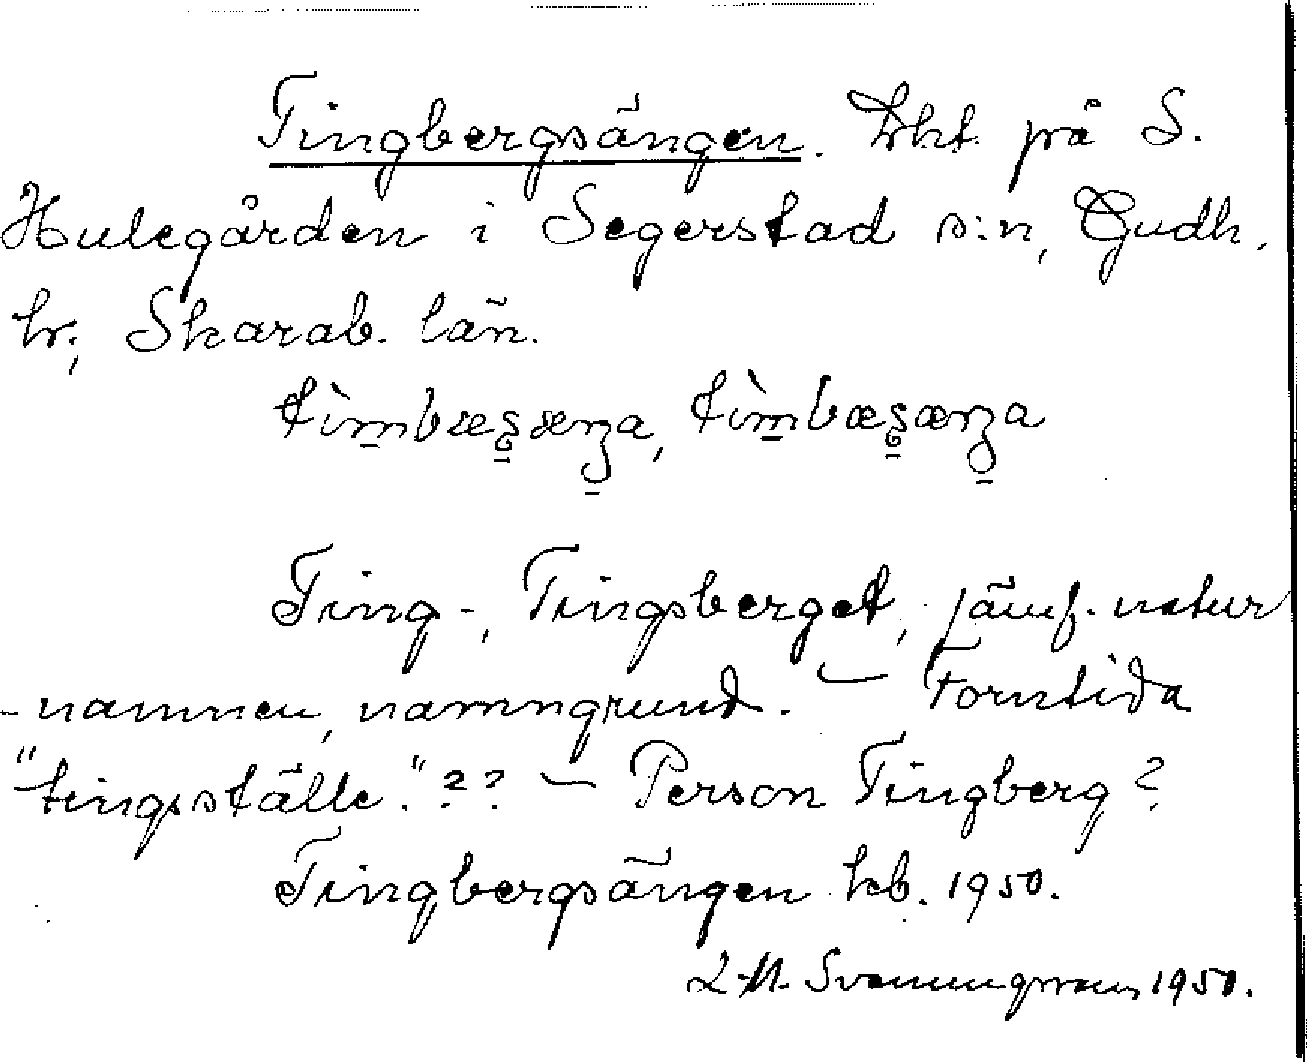 Tingbergsängen. Lht. på S.
Hulegården i Segerstad s:n, Gudh.
hr., Skarab. län.
tìmbæʂæŋa, tìmbæʂæŋa
Ting-, Tingsberget, jämf. natur
-namnen, namngrund. — Forntida
"tingsställe."?? — Person Tingberg?
Tingbergsängen kb. 1950.
1950.